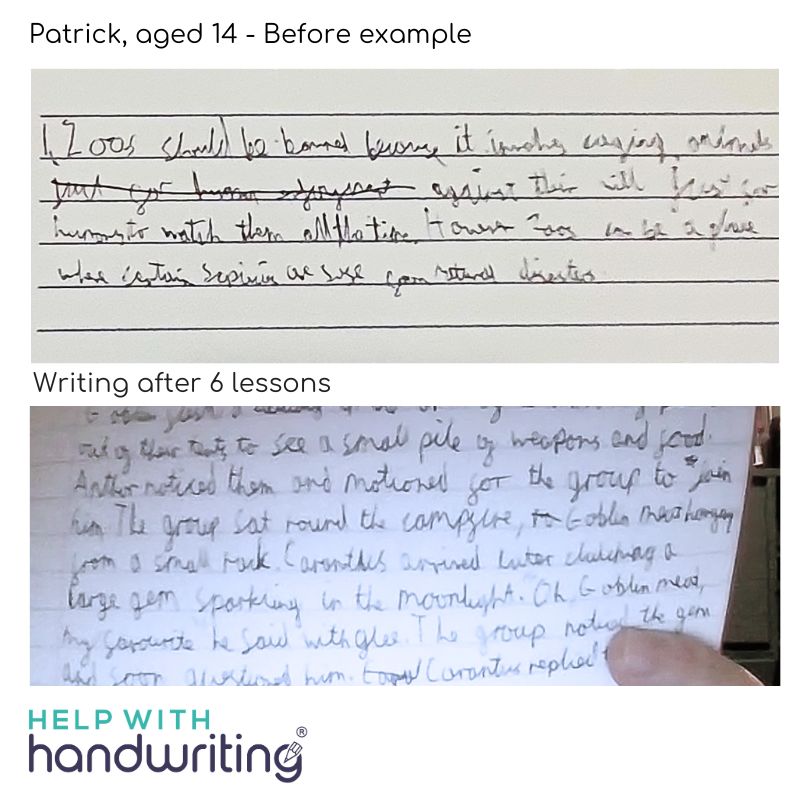 Patrick, aged 14 - Before example
1, Zoos should be banned because it involves caging animals
just for human enjoyment against their will just for
humans to watch them all the time. However Zoos can be a place
where certain are safe from natural disasters
Writing after 6 lessons
out of their tents to see a small pile of weapons and food.
noticed them and motioned for the group to join
him The group sat round the campfire, to Goblin meat
from a small rock. arrived later clutching a
large gem sparkling in the moonlight. Oh Goblin meat,
my favourite he said with glee. The group noticed the gem
and soon questioned him. replied
HELP WITH
handwriting®